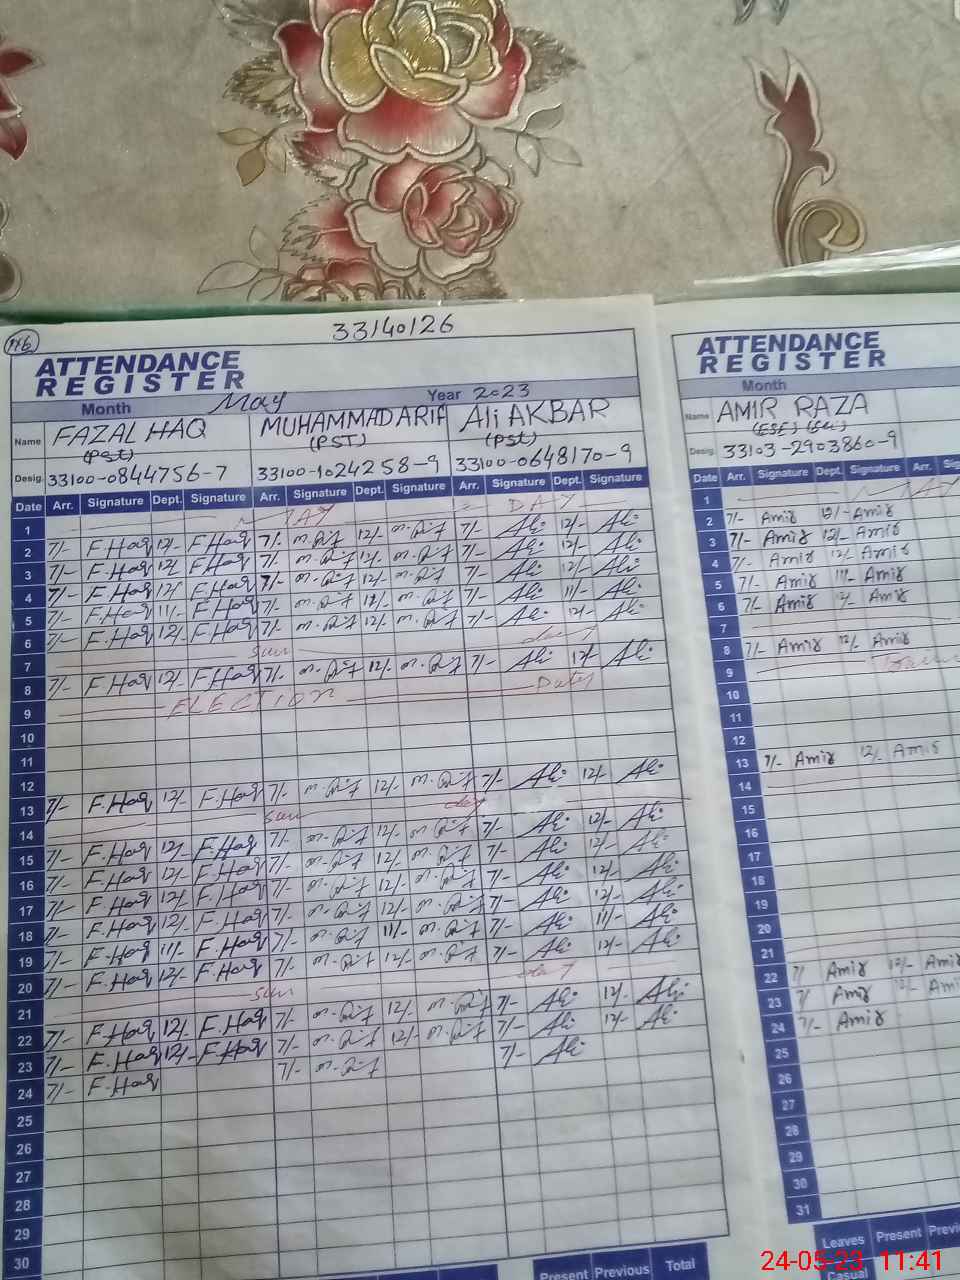 33140126
ATTENDANCE
REGISTER
Month May Year 2023
Name FAZAL HAQ MUHAMMAD ARIF Ali AKBAR
(Pst) (PST) (Pst)
Desig. 33100-0844756-7 33100-1024258-9 33100-0648170-9
Date Arr. Signature Dept. Signature Arr. Signature Dept. Signature Arr. Signature Dept. Signature
1 MAY DAY
2 7/- F.Haq 12/- F.Haq 7/- M.Arif 12/- M.Arif 7/- Ali 12/- Ali
3 7/- F.Haq 12/- F.Haq 7/- M.Arif 12/- M.Arif 7/- Ali 12/- Ali
4 7/- F.Haq 12/- F.Haq 7/- M.Arif 12/- M.Arif 7/- Ali 12/- Ali
5 7/- F.Haq 11/- F.Haq 7/- M.Arif 11/- M.Arif 7/- Ali 11/- Ali
6 7/- F.Haq 12/- F.Haq 7/- M.Arif 12/- M.Arif 7/- Ali 12/- Ali
7 Sun day
8 7/- F.Haq 12/- F.Haq 7/- M.Arif 12/- M.Arif 7/- Ali 12/- Ali
9 ELECTION Duty
10
11
12
13 7/- F.Haq 12/- F.Haq 7/- M.Arif 12/- M.Arif 7/- Ali 12/- Ali
14 Sun day
15 7/- F.Haq 12/- F.Haq 7/- M.Arif 12/- M.Arif 7/- Ali 12/- Ali
16 7/- F.Haq 12/- F.Haq 7/- M.Arif 12/- M.Arif 7/- Ali 12/- Ali
17 7/- F.Haq 12/- F.Haq 7/- M.Arif 12/- M.Arif 7/- Ali 12/- Ali
18 7/- F.Haq 12/- F.Haq 7/- M.Arif 12/- M.Arif 7/- Ali 12/- Ali
19 7/- F.Haq 11/- F.Haq 7/- M.Arif 11/- M.Arif 7/- Ali 11/- Ali
20 7/- F.Haq 12/- F.Haq 7/- M.Arif 12/- M.Arif 7/- Ali 12/- Ali
21 Sun day
22 7/- F.Haq 12/- F.Haq 7/- M.Arif 12/- M.Arif 7/- Ali 12/- Ali
23 7/- F.Haq 12/- F.Haq 7/- M.Arif 12/- M.Arif 7/- Ali 12/- Ali
24 7/- F.Haq 7/- M.Arif 7/- Ali
25
26
27
28
29
30
Present Previous Total
ATTENDANCE
REGISTER
Month
Name AMIR RAZA
(ESE)
Desig. 33103-2903860-9
Date Arr. Signature Dept. Signature Arr.
1 MAY
2 7/- Amir 12/- Amir
3 7/- Amir 12/- Amir
4 7/- Amir 12/- Amir
5 7/- Amir 11/- Amir
6 7/- Amir 12/- Amir
7
8 7/- Amir 12/- Amir
9
10
11
12
13 7/- Amir 12/- Amir
14
15
16
17
18
19
20
21
22 7/ Amir 12/- Amir
23 7/ Amir 12/- Ami
24 7/- Amir
25
26
27
28
29
30
31
Leaves Present
Casual
24-05-23 11:41